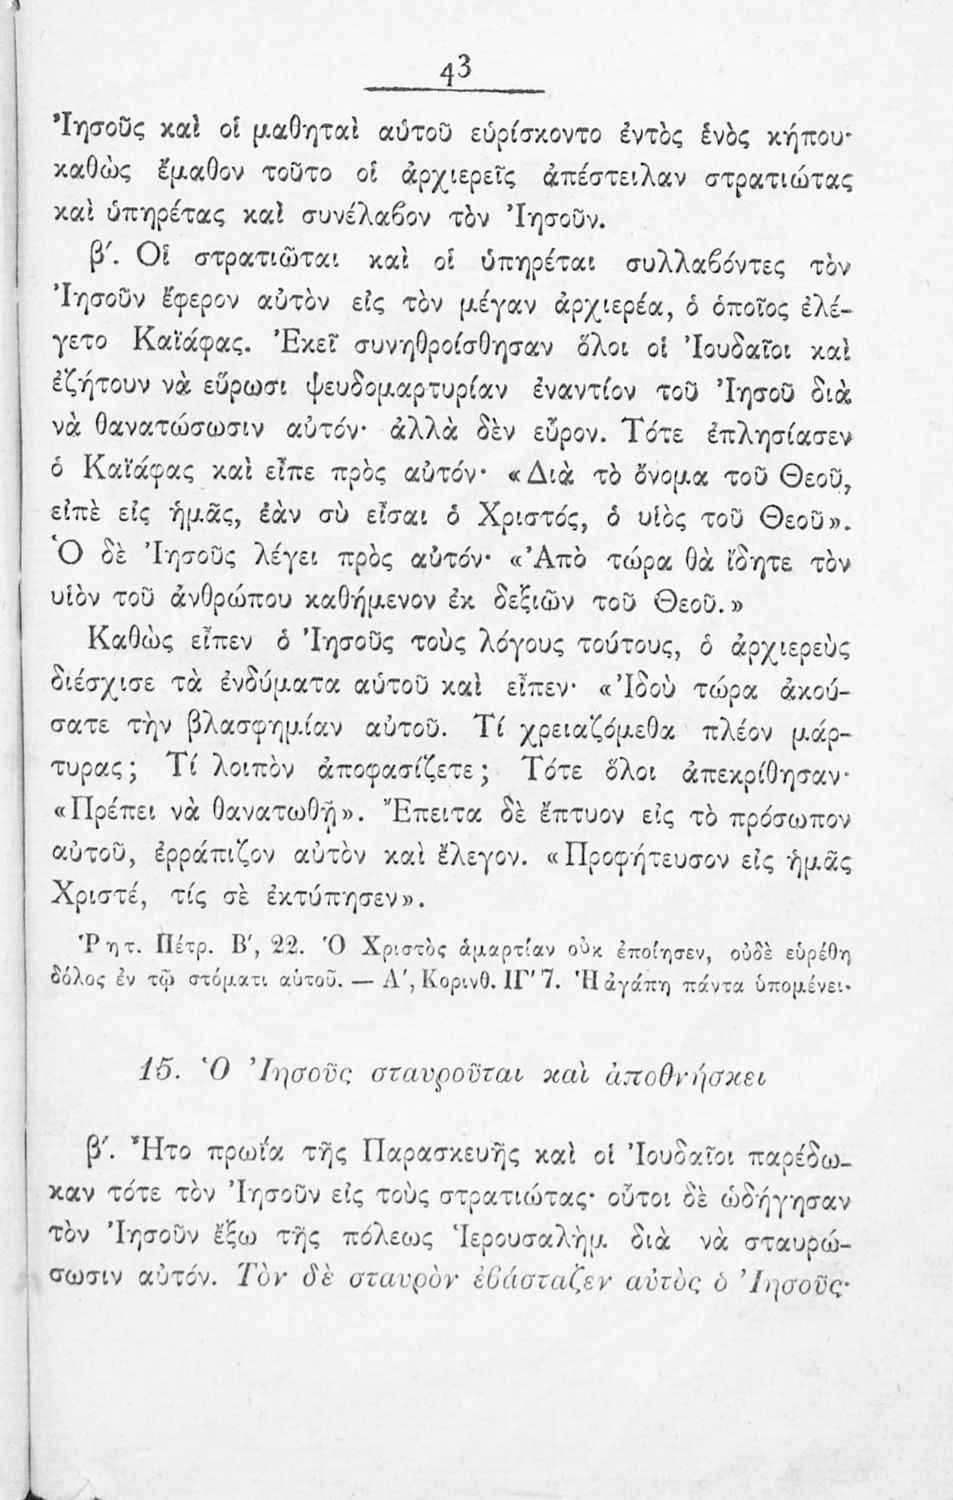 43
Ἰησοῦς καὶ οἱ μαθηταὶ αὑτοῦ εὑρίσκοντο ἐντὸς ἑνὸς κήπου·
καθὼς ἔμαθον τοῦτο οἱ ἀρχιερεῖς ἀπέστειλαν στρατιώτας
καὶ ὑπηρέτας καὶ συνέλαβον τὸν Ἰησοῦν.
β′. Οἱ στρατιῶται καὶ οἱ ὑπηρέται συλλαβόντες τὸν
Ἰησοῦν ἔφερον αὐτὸν εἰς τὸν μέγαν ἀρχιερέα, ὁ ὁποῖος ἐλέ-
γετο Καϊάφας. Ἐκεῖ συνηθροίσθησαν ὅλοι οἱ Ἰουδαῖοι καὶ
ἐζήτουν νὰ εὕρωσι ψευδομαρτυρίαν ἐναντίον τοῦ Ἰησοῦ διὰ
νὰ θανατώσωσιν αὐτόν· ἀλλὰ δὲν εὗρον. Τότε ἐπλησίασεν
ὁ Καϊάφας καὶ εἶπε πρὸς αὐτόν· «Διὰ τὸ ὄνομα τοῦ Θεοῦ,
εἰπὲ εἰς ἡμᾶς, ἐὰν σὺ εἶσαι ὁ Χριστός, ὁ υἱὸς τοῦ Θεοῦ».
Ὁ δὲ Ἰησοῦς λέγει πρὸς αὐτόν· «Ἀπὸ τώρα θὰ ἴδητε τὸν
υἱὸν τοῦ ἀνθρώπου καθήμενον ἐκ δεξιῶν τοῦ Θεοῦ.»
Καθὼς εἶπεν ὁ Ἰησοῦς τοὺς λόγους τούτους, ὁ ἀρχιερεὺς
διέσχισε τὰ ἐνδύματα αὑτοῦ καὶ εἶπεν· «Ἰδοὺ τώρα ἀκού-
σατε τὴν βλασφημίαν αὐτοῦ. Τί χρειαζόμεθα πλέον μάρ-
τυρας; Τί λοιπὸν ἀποφασίζετε; Τότε ὅλοι ἀπεκρίθησαν·
«Πρέπει νὰ θανατωθῇ». Ἔπειτα δὲ ἔπτυον εἰς τὸ πρόσωπον
αὐτοῦ, ἐρράπιζον αὐτὸν καὶ ἔλεγον. «Προφήτευσον εἰς ἡμᾶς
Χριστέ, τίς σὲ ἐκτύπησεν».
Ῥητ. Πέτρ. Β′, 22. Ὁ Χριστὸς ἁμαρτίαν οὐκ ἐποίησεν, οὐδὲ εὑρέθη
δόλος ἐν τῷ στόματι αὑτοῦ. — Α′, Κορινθ. ΙΓ′ 7. Ἡ ἀγάπη πάντα ὑπομένει·
15. Ὁ Ἰησοῦς σταυροῦται καὶ ἀποθνήσκει
β′. Ἦτο πρωΐα τῆς Παρασκευῆς καὶ οἱ Ἰουδαῖοι παρέδω-
καν τότε τὸν Ἰησοῦν εἰς τοὺς στρατιώτας· οὗτοι δὲ ὡδήγησαν
τὸν Ἰησοῦν ἔξω τῆς πόλεως Ἱερουσαλὴμ διὰ νὰ σταυρώ-
σωσιν αὐτόν. Τὸν δὲ σταυρὸν ἐβάσταζεν αὐτὸς ὁ Ἰησοῦς·